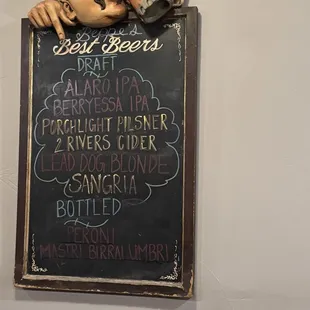 Beppe's
Best Beers
DRAFT
ALARO IPA
BERRYESSA IPA
PORCHLIGHT PILSNER
2 RIVERS CIDER
LEAD DOG BLONDE
SANGRIA
BOTTLED
PERONI
MASTRI BIRRAI UMBRI